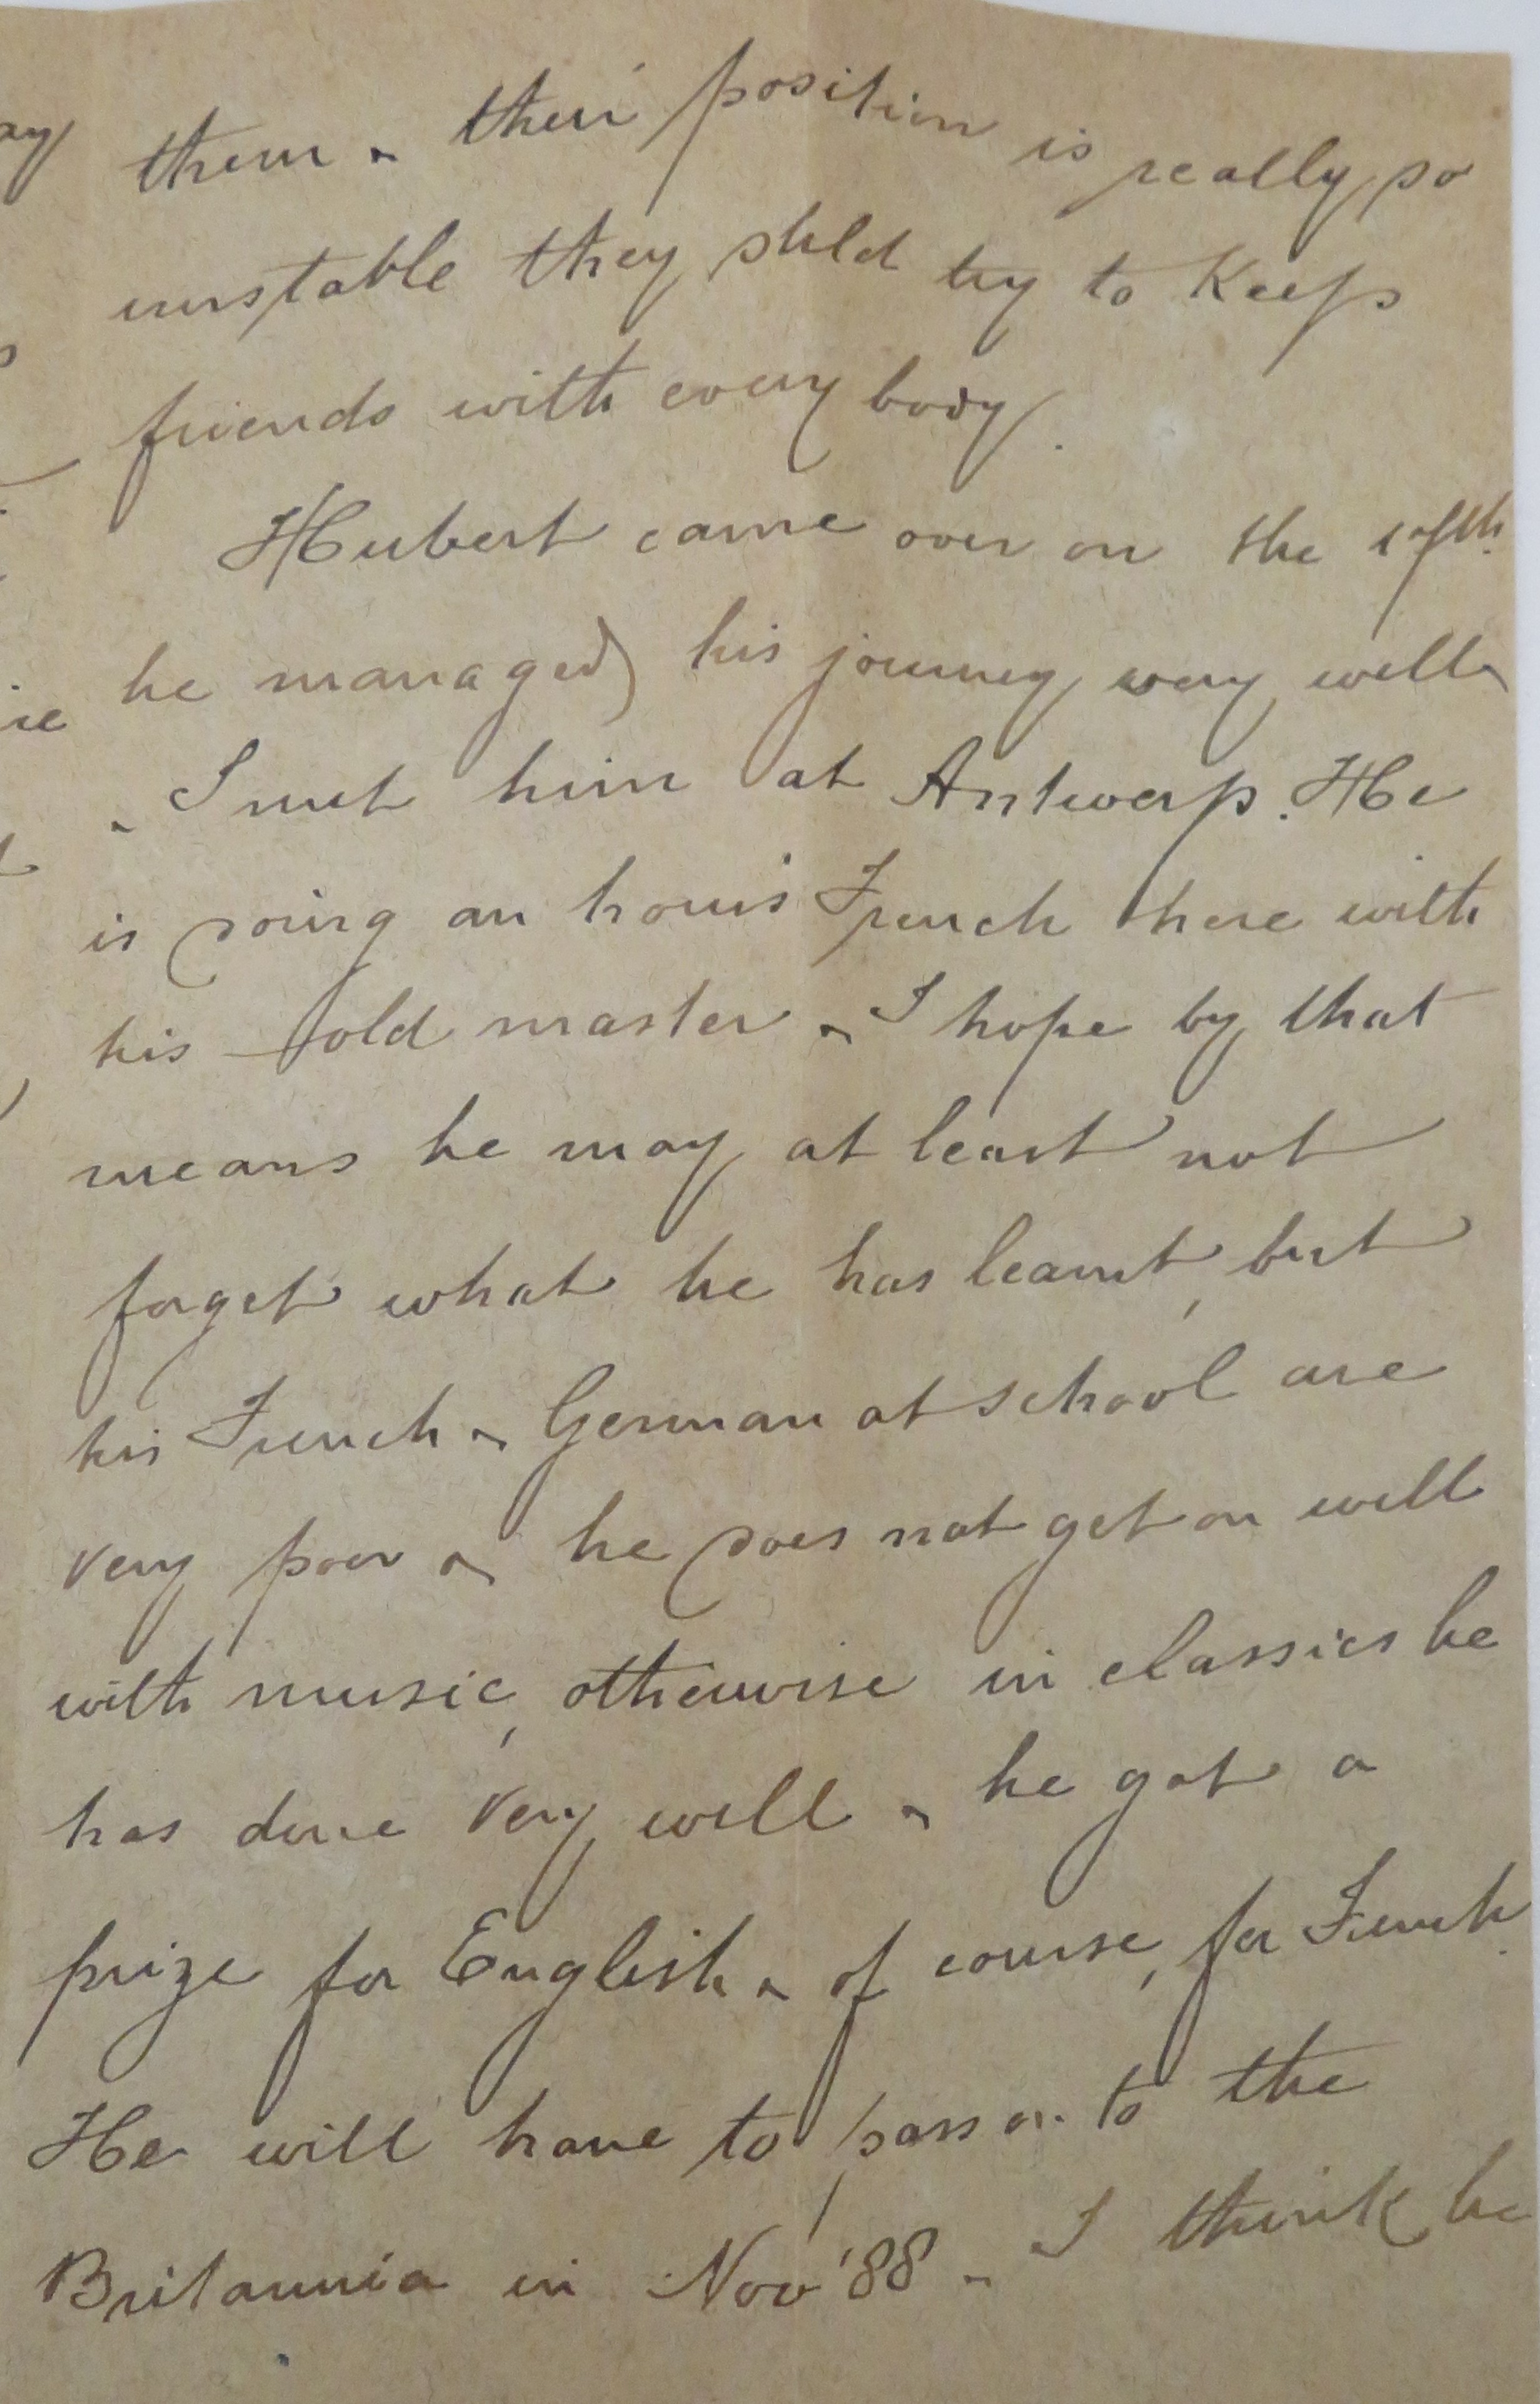 them & their position is really so
unstable they shld try to keep
friends with every body.
Hubert came over on the
he managed his journey very well
& I met him at Antwerp. He
is doing an hour's French here with
his old master & I hope by that
means he may at least not
forget what he has learnt, but
his French & German at school are
very poor & he does not get on well
with music, otherwise in classics he
has done very well & he got a
prize for English & of course, for French.
He will have to pass on to the
Britannia in Nov '88 & I think he